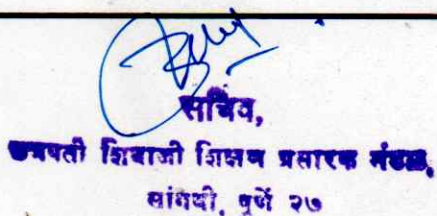 सचिव,
छत्रपती शिवाजी शिक्षण प्रसारक मंडळ,
सांगवी, पुणें २७